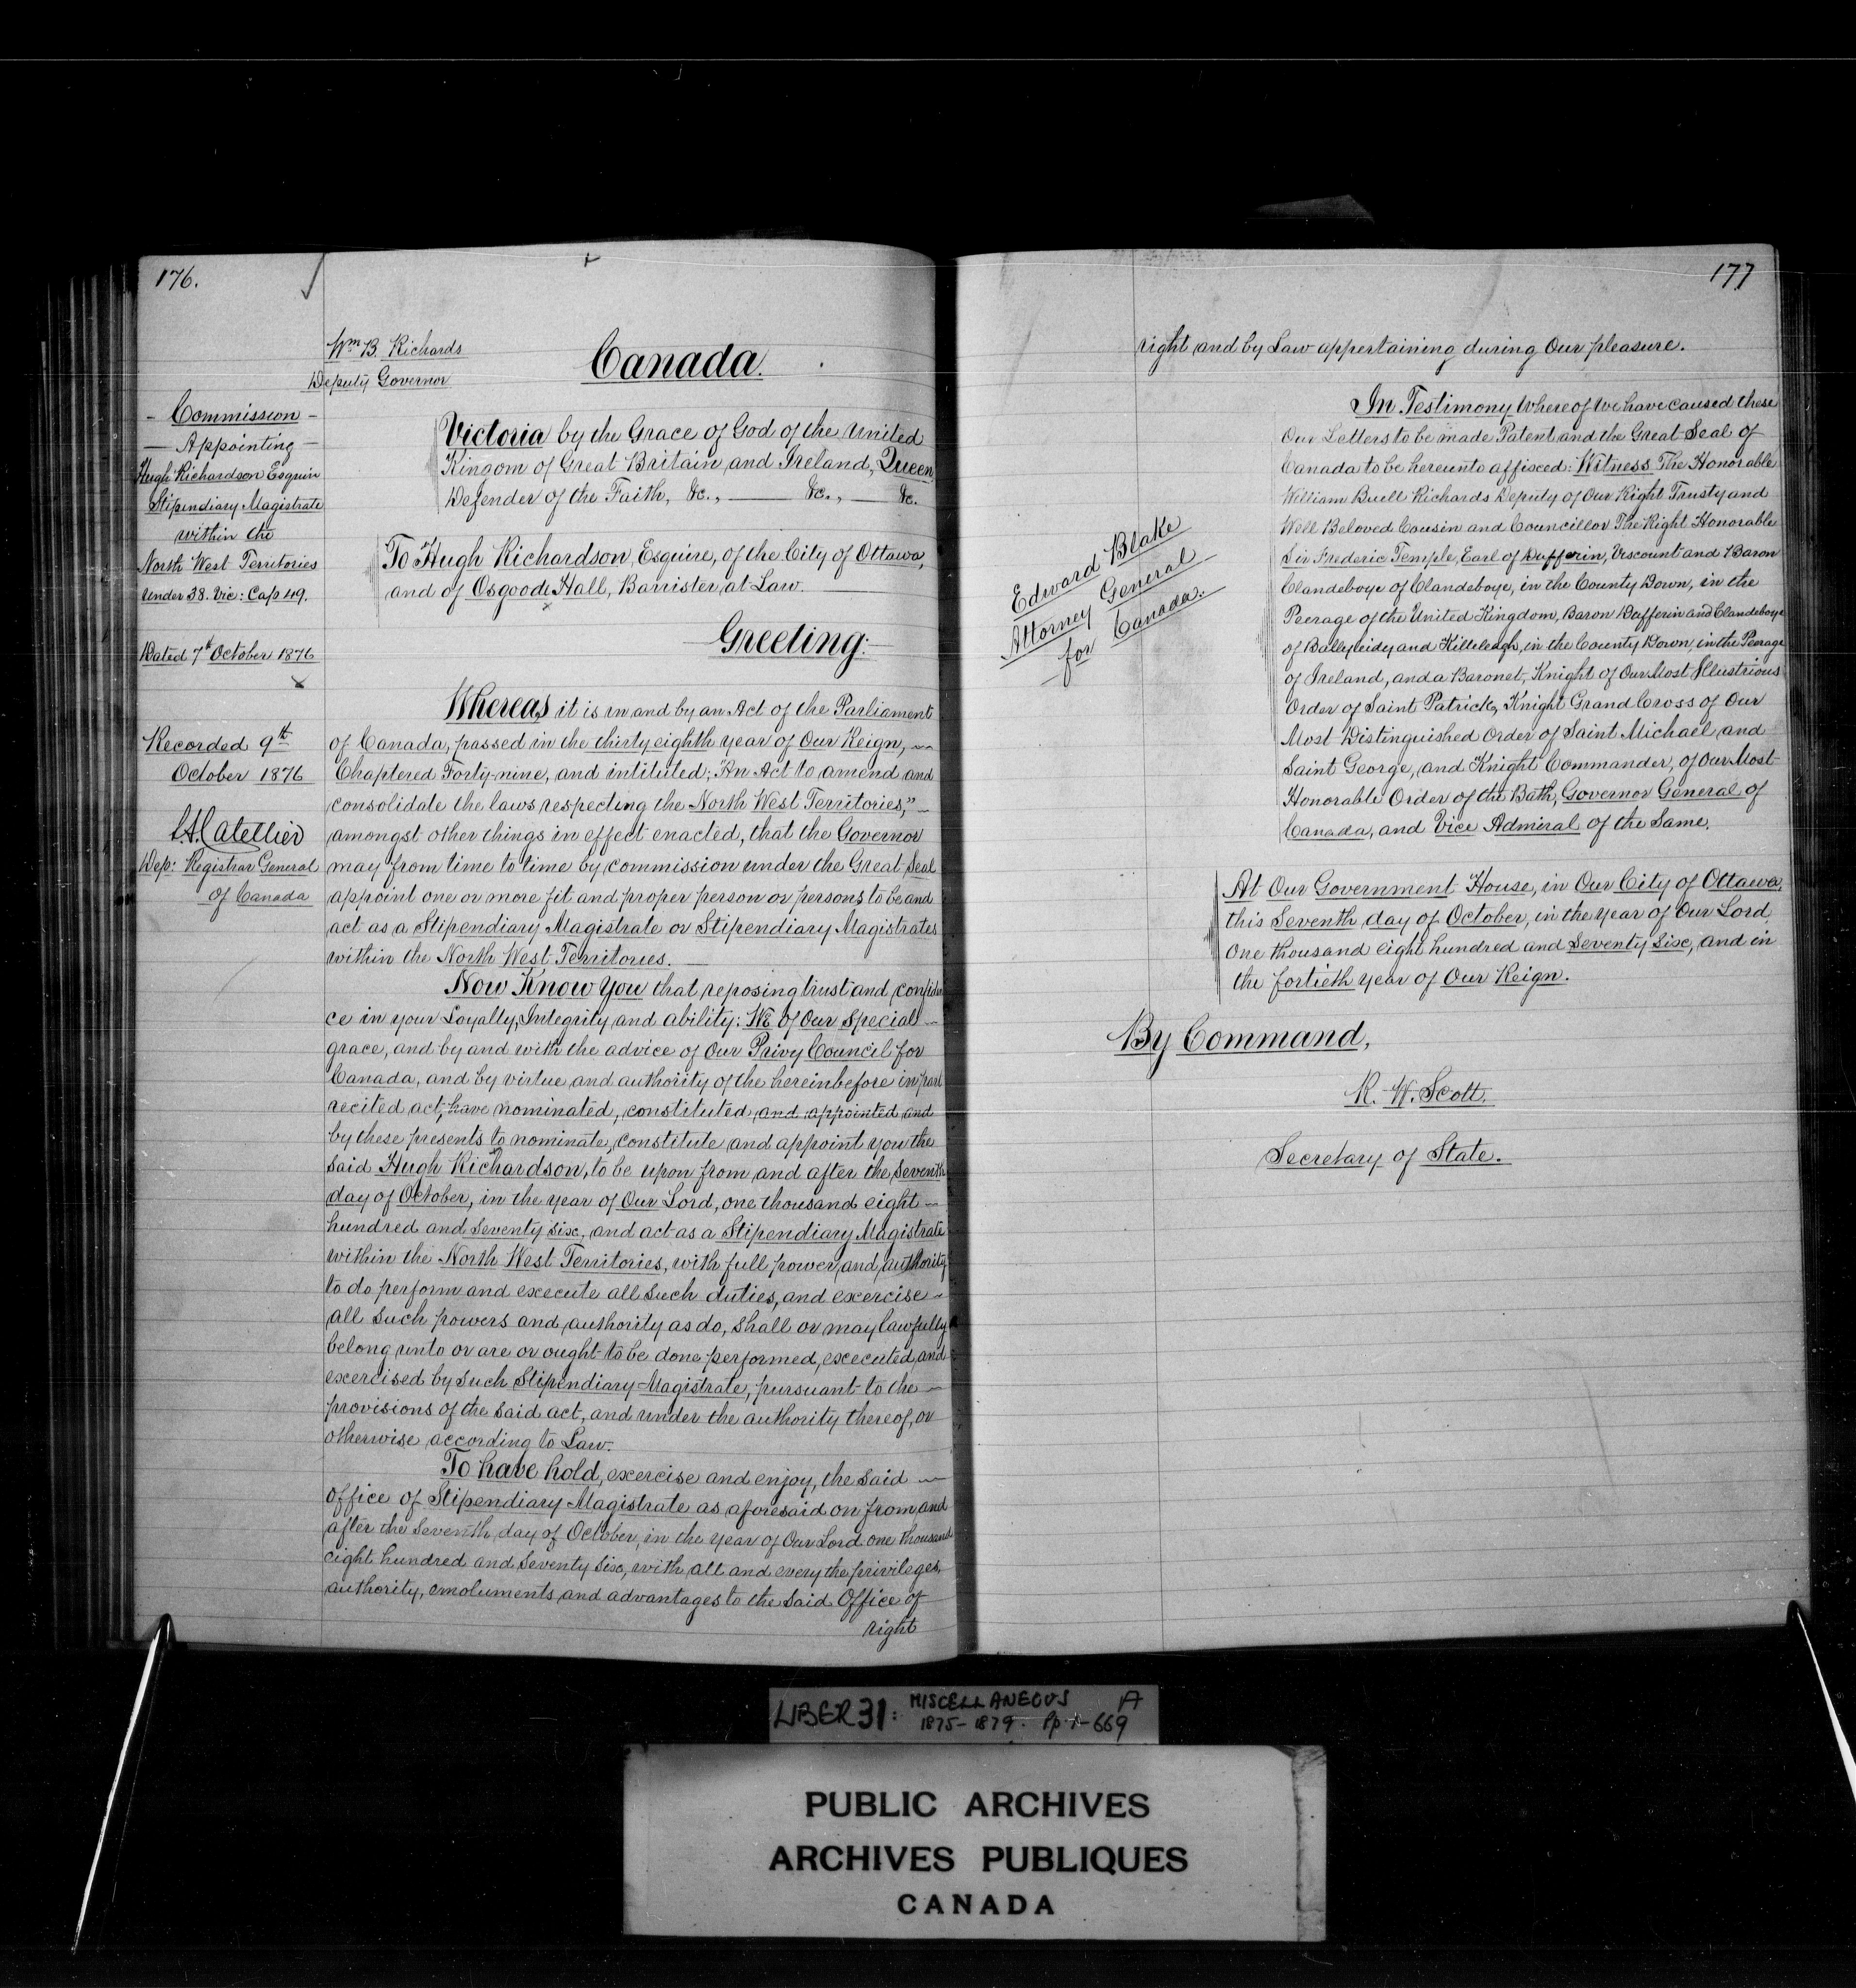 176.
Wm. B. Richards
Deputy Governor
Canada.
- Commission -
- Appointing -
Hugh Richardson Esquire
Stipendiary Magistrate
within the
North West Territories
under 38. Vic: Cap 49.
Dated 7th October 1876
Recorded 9th
October 1876
L.A. Catellier
Dep: Registrar General
of Canada
Victoria by the Grace of God of the United
Kingom of Great Britain and Ireland, Queen
Defender of the Faith, &c., — &c., — &c.
To Hugh Richardson, Esquire, of the City of Ottawa,
and of Osgoode Hall, Barrister, at Law.
Greeting:
Whereas it is in and by an Act of the Parliament
of Canada, passed in the thirty eighth year of Our Reign,
Chaptered Forty-nine, and intituted; "An Act to amend and
consolidate the laws respecting the North West Territories,"
amongst other things in effect enacted, that the Governor
may from time to time by commission under the Great Seal
appoint one or more fit and proper person or persons to be and
act as a Stipendiary Magistrate or Stipendiary Magistrates
within the North West Territories.
Now Know You that reposing trust and confiden
ce in your Loyalty, Integrity and ability; We of Our Special
grace, and by and with the advice of Our Privy Council for
Canada, and by virtue and authority of the hereinbefore in part
recited act, have nominated, constituted and appointed and
by these presents to nominate, constitute and appoint you the
said Hugh Richardson, to be upon from and after the Seventh
day of October, in the year of Our Lord, one thousand eight
hundred and Seventy Six, and act as a Stipendiary Magistrate
within the North West Territories, with full power, and authority
to do perform and execute all Such duties, and exercise
all Such powers and authority as do, Shall or may lawfully
belong unto or are or ought to be done performed, executed, and
exercised by Such Stipendiary Magistrate, pursuant to the
provisions of the said act, and under the authority thereof, or
otherwise according to Law.
To have hold, exercise and enjoy, the said
office of Stipendiary Magistrate as aforesaid on from and
after the Seventh day of October, in the year of Our Lord one thousand
eight hundred and Seventy Six, with all and every the privileges,
authority, emoluments and advantages to the Said Office of
right
177
right and by Law appertaining during Our pleasure.
In Testimony Whereof We have caused these
Our Letters to be made Patent and the Great Seal of
Canada to be hereunto affixed: Witness The Honorable
William Buell Richards Deputy of Our Right Trusty and
Well Beloved Cousin and Councillor The Right Honorable
Sir Frederic Temple, Earl of Dufferin, Viscount and Baron
Clandeboye of Clandeboye, in the County Down, in the
Peerage of the United Kingdom, Baron Dufferin and Clandeboye
of Ballyleidy and Killeleagh, in the County Down, in the Peerage
of Ireland, and a Baronet, Knight of Our Most Illustrious
Order of Saint Patrick, Knight Grand Cross of Our
Most Distinguished Order of Saint Michael and
Saint George, and Knight Commander, of Our Most
Honorable Order of the Bath, Governor General of
Canada, and Vice Admiral of the Same.
Edward Blake
Attorney General
for Canada.
At Our Government House, in Our City of Ottawa,
this Seventh day of October, in the year of Our Lord
One thousand eight hundred and Seventy Six, and in
the fortieth year of Our Reign.
By Command,
R. W. Scott.
Secretary of State.
LIBER 31: MISCELLANEOUS A
1875-1879. Pp. 1-669
PUBLIC ARCHIVES
ARCHIVES PUBLIQUES
CANADA